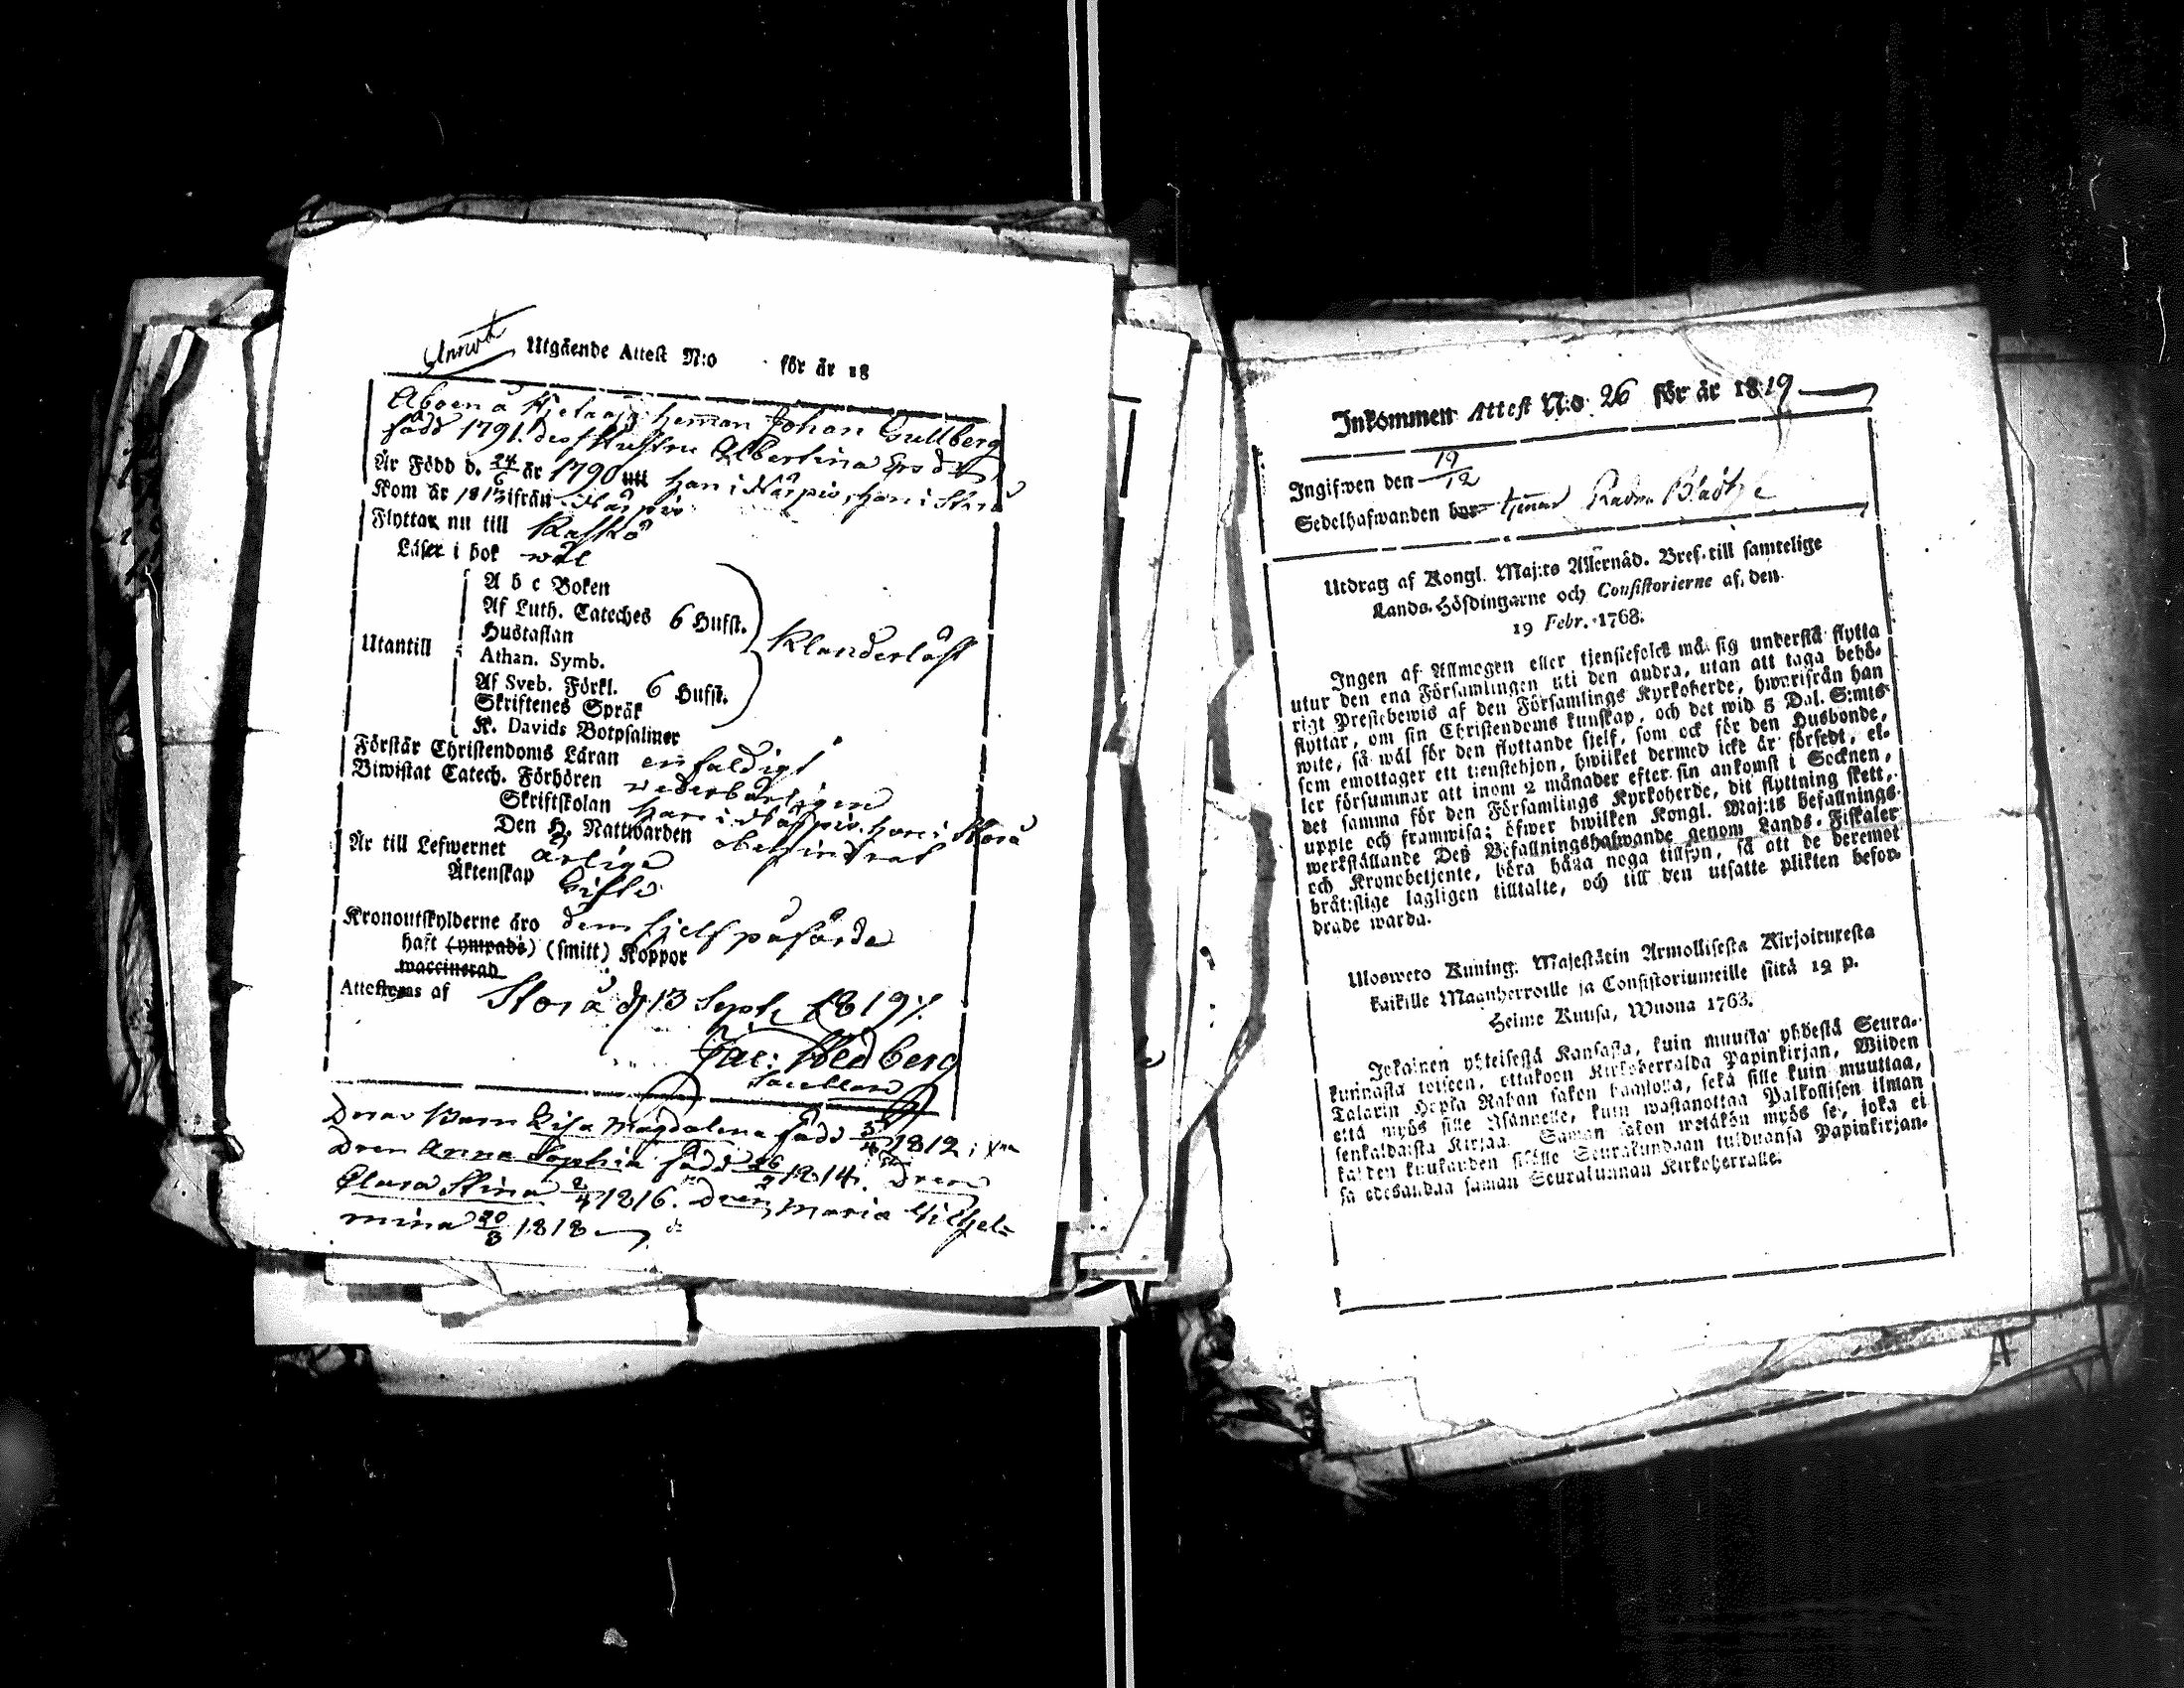 Utgående Attest N:o för år 18
Åboen å Hjelaajs hemman Johan Gullberg
född 1791. dess Hustru Albertina Ersdr
Är Född d. 24/6 år 1790 uti han i Närpio, hon i Storå
Kom år 1813 ifrån Närpio
Flyttar nu till Kaskö
Läser i bok wäl
A b c Boken
Af Luth. Cateches 6 Hufst.
Hustaflan
Utantill
Athan. Symb.
Klanderlöst
Af Sveb. Förkl. 6 Hufst.
Skriftenes Språk
K. Davids Botpsalmer
Förstår Christendoms Läran enfaldigt
Biwistat Catech. Förhören wederbörligen
Skriftskolan han i Närpio, hon i Storå
Den H. Nattwarden obehindrat
Är till Lefwernet ärliga
Äktenskap Gifte
Kronoutskylderne äro dem sjelf påförde
haft (ympade) (smitt) Koppor
waccinerad
Attesteras af Storå d 13 Sept. 1819
Jac: Hedberg
Sacellan
Deras Barn Lisa Magdalena född 1812;
Dren Anna Sophia född 26 1814. Dren
Clara Stina 1816. Dren Maria Wilhel=
mina 20/3 1818
Inkommen Attest N:o 26 för år 1819
Ingifwen den 19/12
Sedelhafwanden bor
Utdrag af Kongl. Maj:ts Allernåd. Bref till samtelige
Lands-Höfdingarne och Consistorierne af den
19 Febr. 1768.
Ingen af Allmogen eller tjenstefolck må sig understå flytta
utur den ena Församlingen uti den andra, utan att taga behö-
rigt Prestebewis af den Församlings Kyrkoherde, hworifrån han
flyttar, om sin Christendoms kunskap, och det wid 5 Dal. S:mts
wite, så wäl för den flyttande sjelf, som ock för den Husbonde,
som emottager ett tienstehjon, hwilket dermed icke är försedt, el-
ler försummar att inom 2 månader efter sin ankomst i Socknen,
det samma för den Församlings Kyrkoherde, dit flyttning skett,
uppte och framwisa; öfwer hwilken Kongl. Maj:ts befallnings
werkställande Deß Befallningshafwande genom Lands-Fiskaler
och Kronobetjente, böra hålla noga tillsyn, så att de deremot
bråtslige lagligen tilltalte, och till den utsatte plikten befor-
drade warda.
Ulosweto Kuning. Majestätin Armollisesta Kirjoituxesta
kaikille Maanherroille ja Consistoriumeille siitä 19 p.
Helme Kuusa, Wuona 1763.
Jokainen yhteisestä Kansasta, kuin muutta yhdestä Seura-
kunnasta toiseen, ottakoon Kirkoherralda Papinkirjan, Wiiden
Talarin Hopia Rahan sakon haastolla, sekä sille kuin muuttaa,
että myös sille Isännelle, kuin wastanottaa Palkollisen ilman
senkaldaista Kirjaa. Saman sakon wetäkön myös se, joka ei
kahden kuukauden sisälle Seurakundaan tulduansa Papinkirjan-
sa edesandaa saman Seurakunnan Kirkoherralle.